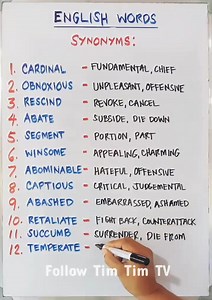 ENGLISH WORDS
SYNONYMS:
1. CARDINAL - FUNDAMENTAL, CHIEF
2. OBNOXIOUS - UNPLEASANT, OFFENSIVE
3. RESCIND - REVOKE, CANCEL
4. ABATE - SUBSIDE, DIE DOWN
5. SEGMENT - PORTION, PART
6. WINSOME - APPEALING, CHARMING
7. ABOMINABLE - HATEFUL, OFFENSIVE
8. CAPTIOUS - CRITICAL, JUDGEMENTAL
9. ABASHED - EMBARRASSED, ASHAMED
10. RETALIATE - FIGHT BACK, COUNTERATTACK
11. SUCCUMB - SURRENDER, DIE FROM
12. TEMPERATE -
Follow Tim Tim TV